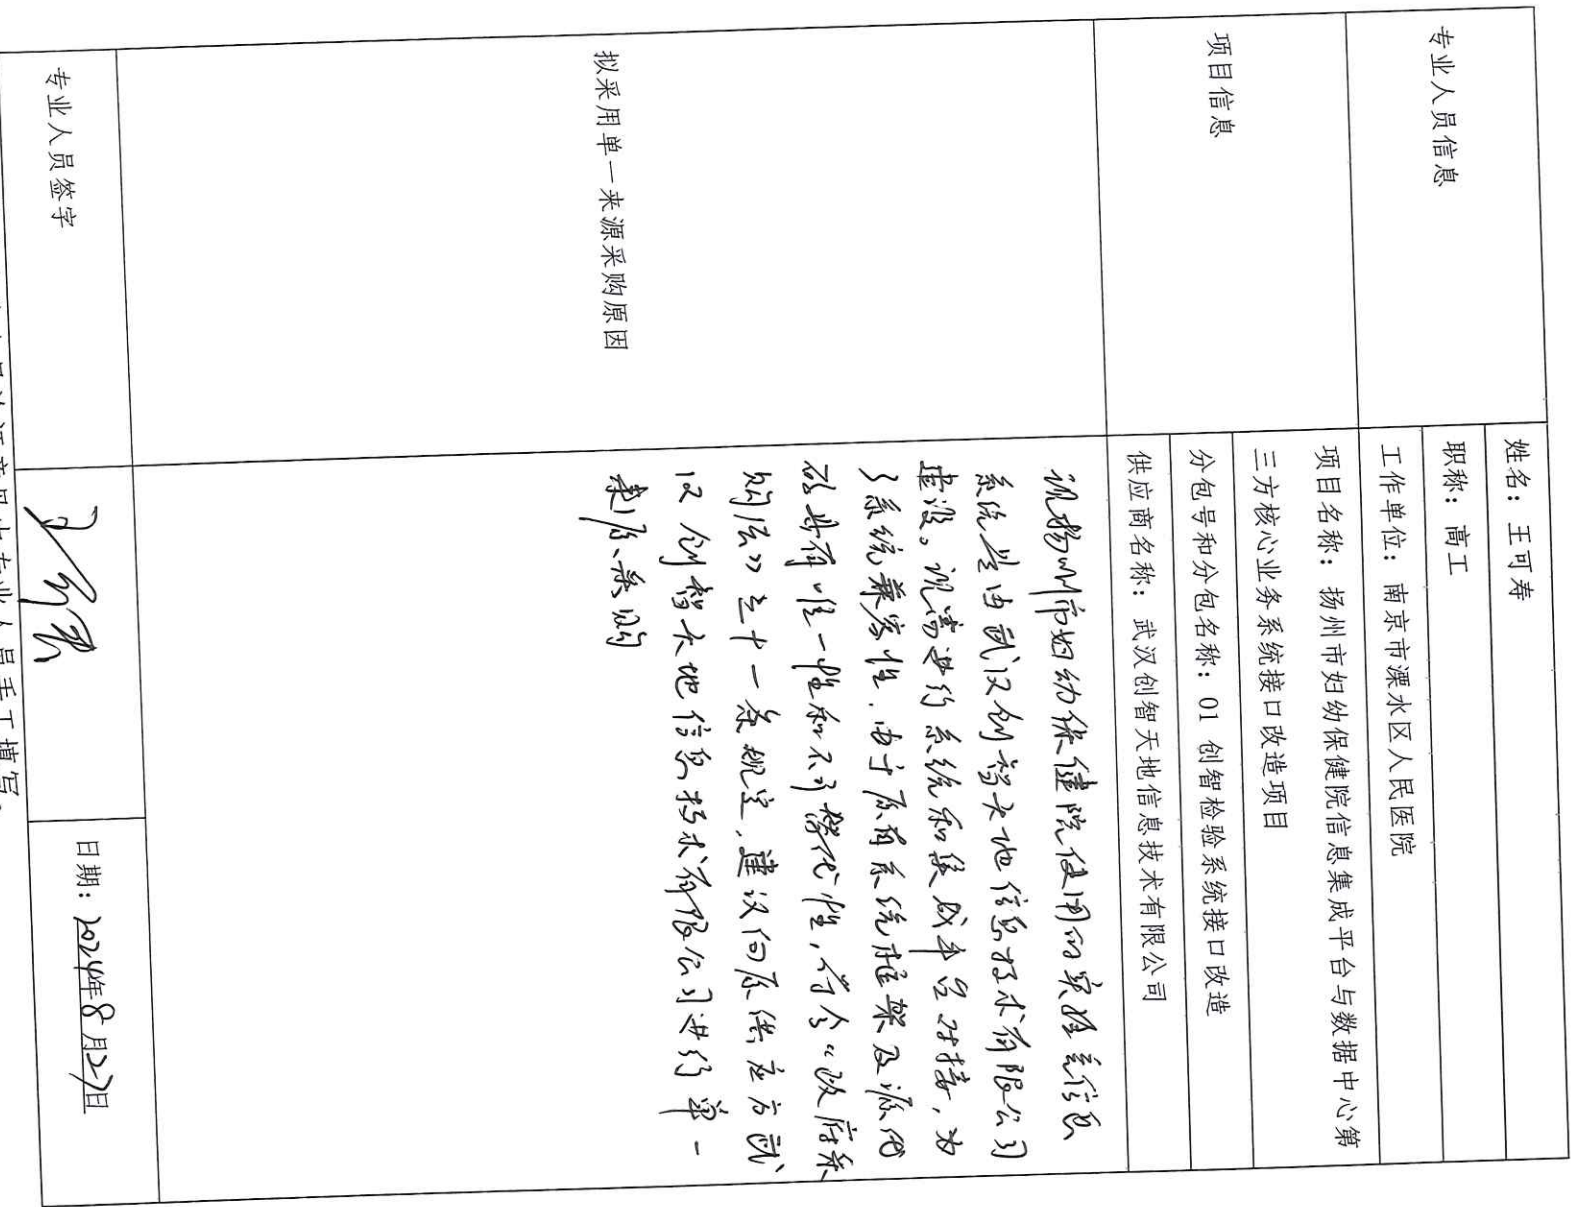 专业人员信息
姓名：王可寿
职称：高工
工作单位：南京市溧水区人民医院
项目信息
项目名称：扬州市妇幼保健院信息集成平台与数据中心第
三方核心业务系统接口改造项目
分包号和分包名称：01 创智检验系统接口改造
供应商名称：武汉创智天地信息技术有限公司
拟采用单一来源采购原因
现扬州市妇幼保健院使用的实验室信息
系统是由武汉创智天地信息技术有限公司
建设。现需进行系统和集成平台对接，为
了系统兼容性，由于原有系统框架及源代
码具有唯一性和不可替代性，符合《政府采
购法》三十一条规定，建议向原供应方武
汉创智天地信息技术有限公司进行单一
来源采购
专业人员签字
日期：2024年8月27日
专业人员手工填写。